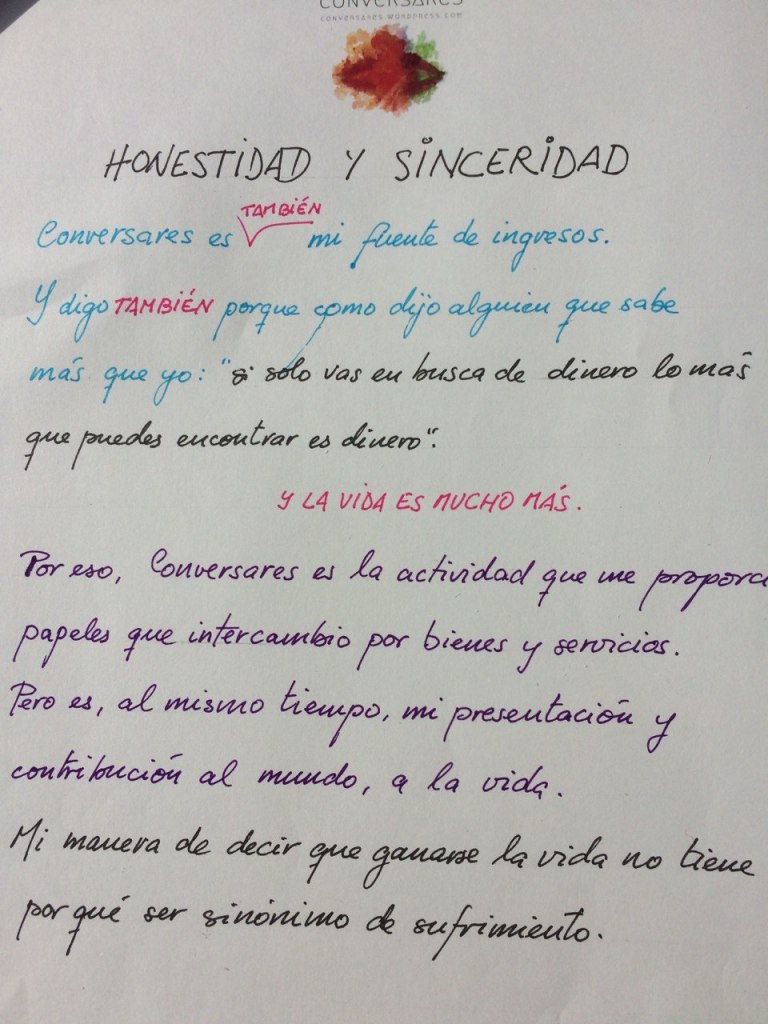 CONVERSARES
CONVERSARES.WORDPRESS.COM
HONESTIDAD Y SINCERIDAD
TAMBIÉN
Conversares es mi fuente de ingresos.
Y digo TAMBIÉN porque como dijo alguien que sabe
más que yo: "si solo vas en busca de dinero lo más
que puedes encontrar es dinero".
Y LA VIDA ES MUCHO MÁS.
Por eso, Conversares es la actividad que me proporci
papeles que intercambio por bienes y servicios.
Pero es, al mismo tiempo, mi presentación y
contribución al mundo, a la vida.
Mi manera de decir que ganarse la vida no tiene
por qué ser sinónimo de sufrimiento.